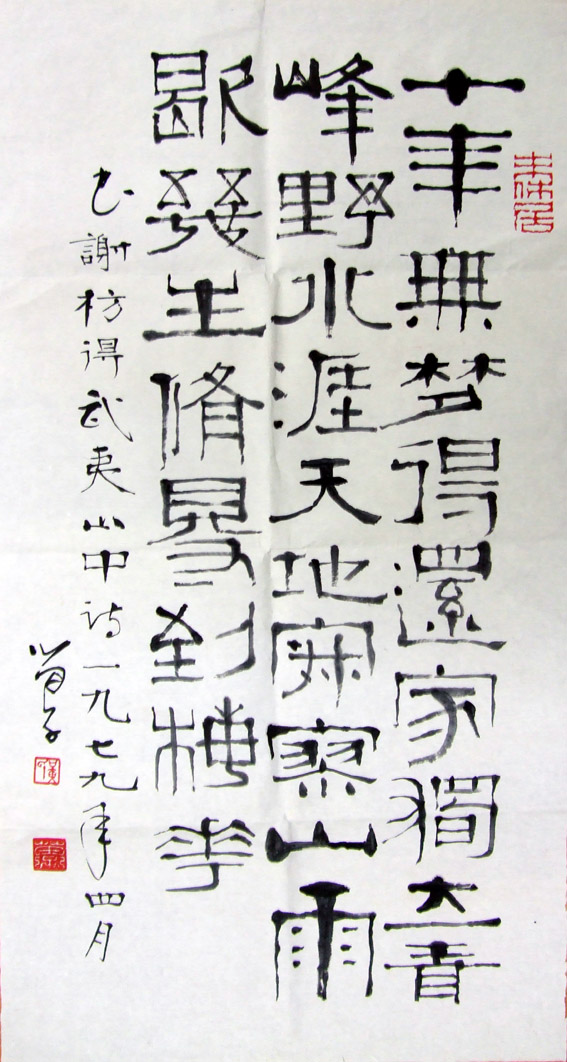 十年無梦得還家獨立青
峰野水涯天地寂寥山雨
歇幾生脩得到梅花
书謝枋得武夷山中诗一九七九年四月